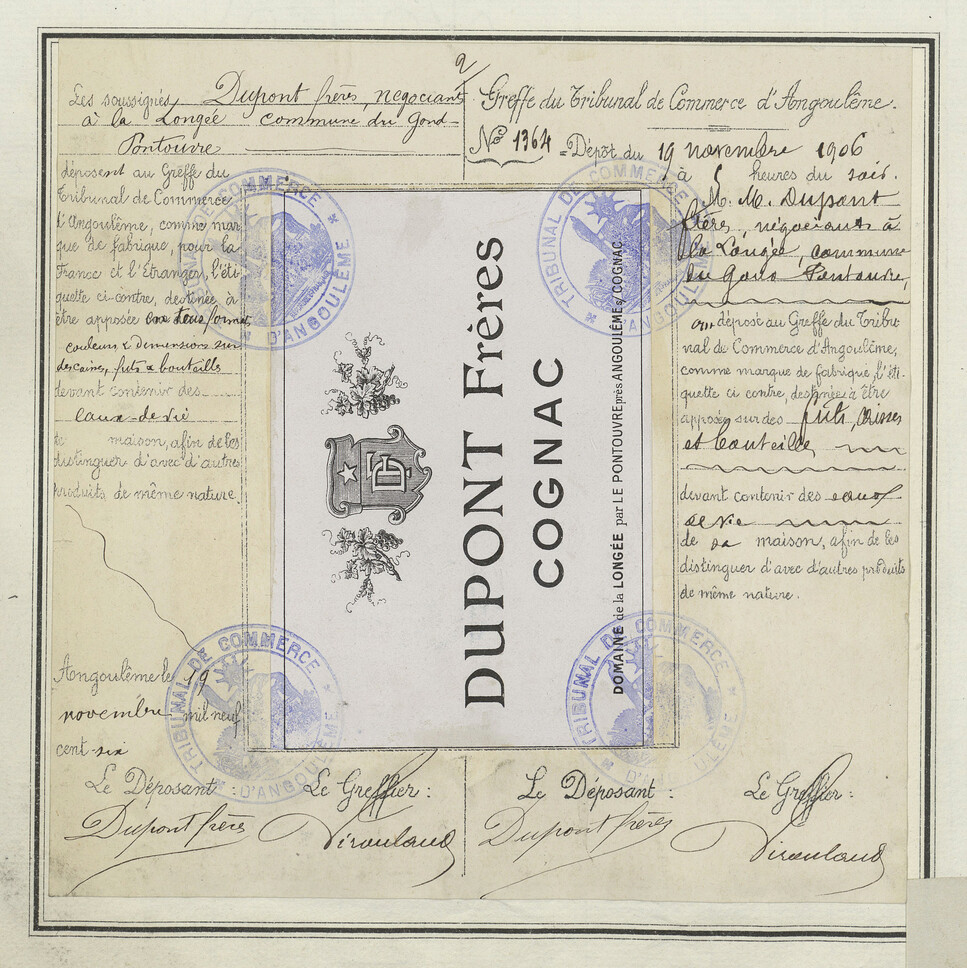 2/
Les soussignés Dupont frères, négociants
à la Longée commune du Gond-
Pontouvre
déposent au Greffe du
Tribunal de Commerce
d'Angoulême, comme mar
que de fabrique, pour la
France et l'étranger, l'éti
quette ci-contre, destinée à
être apposée en tous formats
couleurs & dimensions sur
des caisses, fûts & bouteilles
devant contenir des
eaux-de-vie
de maison, afin de les
distinguer d'avec d'autres
produits de même nature.
Angoulême le 19
novembre mil neuf
cent six
Le Déposant : Le Greffier :
Dupont frères
DF
DUPONT Frères
COGNAC
DOMAINE de la LONGÉE par LE PONTOUVRE près ANGOULÊME s/COGNAC
TRIBUNAL DE COMMERCE
D'ANGOULÊME
TRIBUNAL DE COMMERCE
D'ANGOULÊME
TRIBUNAL DE COMMERCE
D'ANGOULÊME
TRIBUNAL DE COMMERCE
D'ANGOULÊME
Greffe du Tribunal de Commerce d'Angoulême.
No 1364 = Dépôt du 19 novembre 1906
à 5 heures du soir.
M. M. Dupont
frères, négociants à
la Longée, commune
du Gond Pontouvre,
ont déposé au Greffe du Tribu
nal de Commerce d'Angoulême,
comme marque de fabrique, l'éti
quette ci contre, destinée à être
apposée sur des fûts, caisses
et bouteilles
devant contenir des eaux
de vie
de sa maison, afin de les
distinguer d'avec d'autres produits
de même nature.
Le Déposant : Le Greffier :
Dupont frères